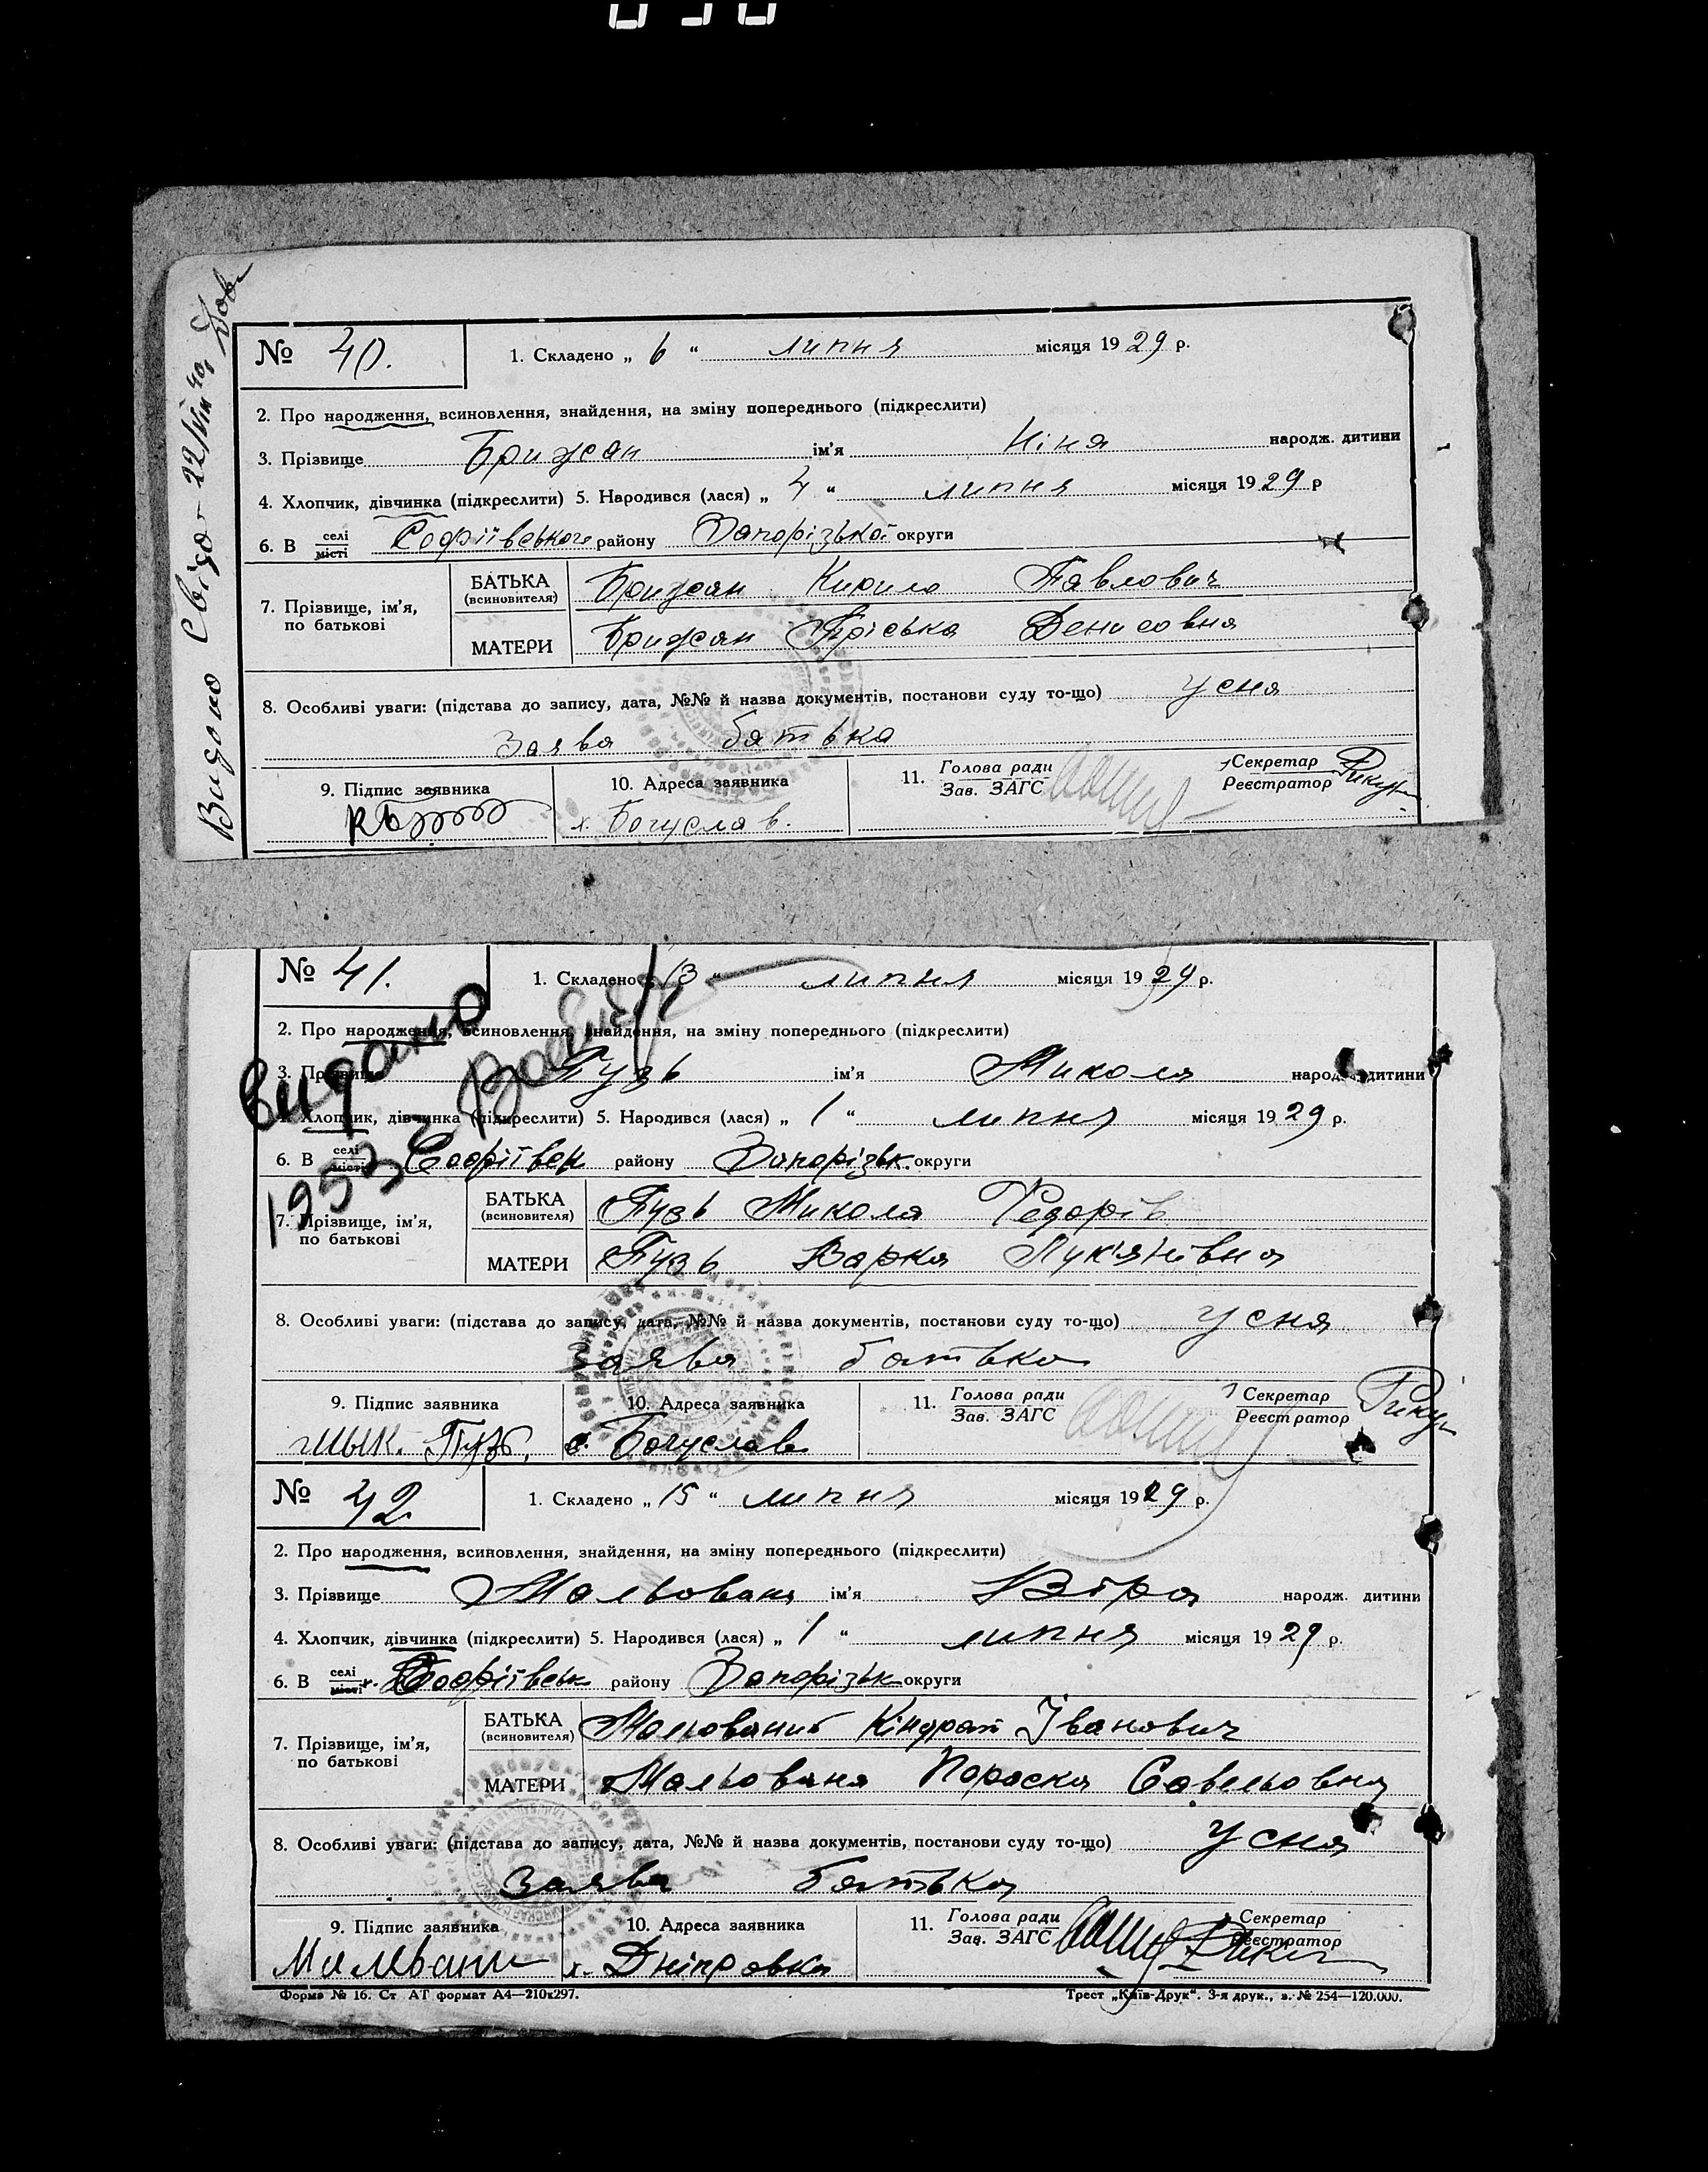 Видано Свідо- 22/VIII 40р
№ 40. 1. Складено „ 6 “ липня місяця 19 29 р.
2. Про народження, всиновлення, знайдення, на зміну попереднього (підкреслити)
3. Прізвище Брижан ім'я Ніна народж. дитини
4. Хлопчик, дівчинка (підкреслити) 5. Народився (лася) „ 4 “ липня місяця 19 29 р
6. В селі місті Софіївського району Запорізької округи
7. Прізвище, ім'я, по батькові
БАТЬКА (всиновителя) Брижан Кирило Павлович
МАТЕРИ Брижан Пріська Денисовна
8. Особливі уваги: (підстава до запису, дата, №№ й назва документів, постанови суду то-що) усна
Заява батька
9. Підпис заявника 10. Адреса заявника 11. Голова ради Зав. ЗАГС Секретар Реєстратор
х. Богуслав.
№ 41. 1. Складено „ 13 “ липня місяця 19 29 р.
видано
1953
2. Про народження, всиновлення, знайдення, на зміну попереднього (підкреслити)
3. Прізвище Пузь ім'я Микола народж. дитини
4. Хлопчик, дівчинка (підкреслити) 5. Народився (лася) „ 1 “ липня місяця 19 29 р.
6. В селі місті Софіївськ району Запорізьк. округи
7. Прізвище, ім'я, по батькові
БАТЬКА (всиновителя) Пузь Микола Федорів
МАТЕРИ Пузь Варка Лук'янівна
8. Особливі уваги: (підстава до запису, дата, №№ й назва документів, постанови суду то-що) усна
заява батька
9. Підпис заявника 10. Адреса заявника 11. Голова ради Зав. ЗАГС Секретар Реєстратор
Пузь, с. Богуслав
№ 42 1. Складено „ 15 “ липня місяця 19 29 р.
2. Про народження, всиновлення, знайдення, на зміну попереднього (підкреслити)
3. Прізвище Мальована ім'я Віра народж. дитини
4. Хлопчик, дівчинка (підкреслити) 5. Народився (лася) „ 1 “ липня місяця 19 29 р.
6. В селі місті Софіївськ району Запорізьк округи
7. Прізвище, ім'я, по батькові
БАТЬКА (всиновителя) Мальований Кіндрат Іванович
МАТЕРИ Мальована Параска Савельовна
8. Особливі уваги: (підстава до запису, дата, №№ й назва документів, постанови суду то-що) Усна
Заява батька
9. Підпис заявника 10. Адреса заявника 11. Голова ради Зав. ЗАГС Секретар Реєстратор
х. Дніпровка
Форма № 16. Ст АТ формат А4—210х297. Трест „Київ-Друк“. 3-я друк., з. № 254—120.000.